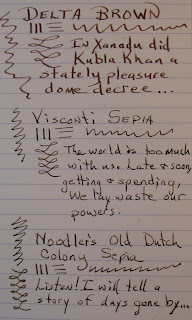 DELTA BROWN
In Xanadu did
Kubla Khan a
stately pleasure
dome decree...
Visconti Sepia
The world is too much
with us. Late & soon,
getting & spending,
We lay waste our
powers.
Noodler's Old Dutch
Colony Sepia
Listen! I will tell a
story of days gone by...